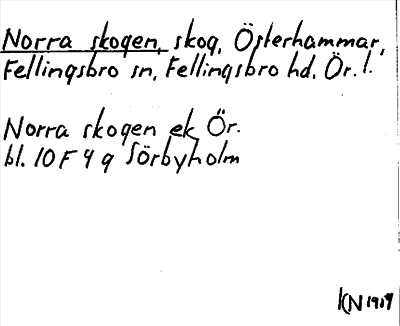 Norra skogen, skog, Österhammar,
Fellingsbro sn, Fellingsbro hd, Ör. l.
Norra skogen ek Ör.
bl. 10 F 4 g Sörbyholm
KN 1917